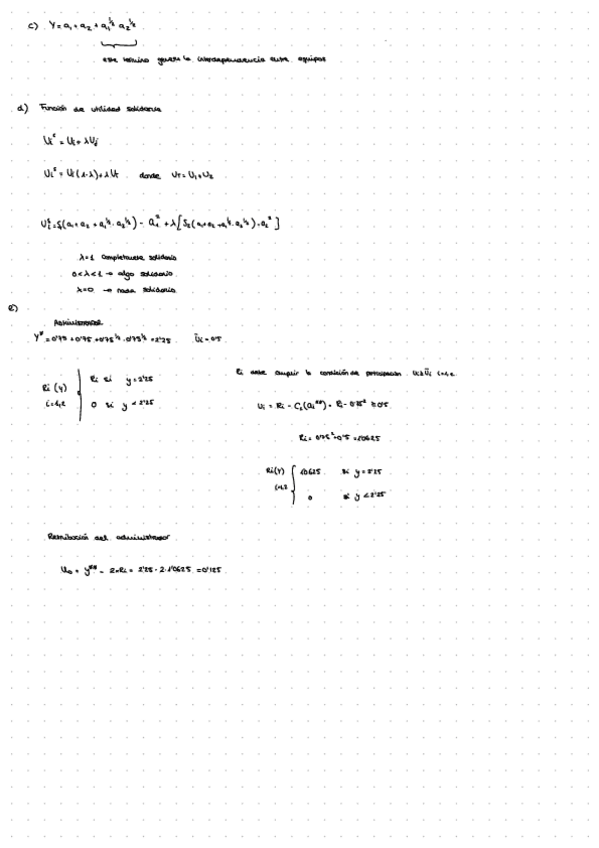 c) Y = a₁ + a₂ + a₁^½ a₂^½
este término genera la interdependencia entre equipos
d) Función de utilidad solidaria
Uᵢˢ = Uᵢ + λUⱼ
Uᵢˢ = Uᵢ(1-λ) + λU_T donde U_T = U₁ + U₂
(a₁ + a₂ + a₁^½ · a₂^½) - a₁² + λ[S₂(a₁ + a₂ + a₁^½ · a₂^½) - a₂²]
λ=1 completamente solidario
0<λ<1 → algo solidario
λ=0 → nada solidario
e)
Administrador
Y** = 0'75 + 0'75 + 0'75^½ · 0'75^½ = 2'25 Ūᵢ = 0'5
Rᵢ debe cumplir la condición de participación Uᵢ ≥ Ūᵢ i=1,2
Rᵢ (y) { Rᵢ si y = 2'25
i=1,2 0 si y < 2'25
Uᵢ = Rᵢ - Cᵢ(aᵢ**) = Rᵢ - 0'75² ≥ 0'5
Rᵢ = 0'75² + 0'5 = 1'0625
Rᵢ(Y) { 1'0625 si y = 2'25
i=1,2 0 si y < 2'25
Retribución del administrador
U₀ = y** - 2·Rᵢ = 2'25 - 2·1'0625 = 0'125